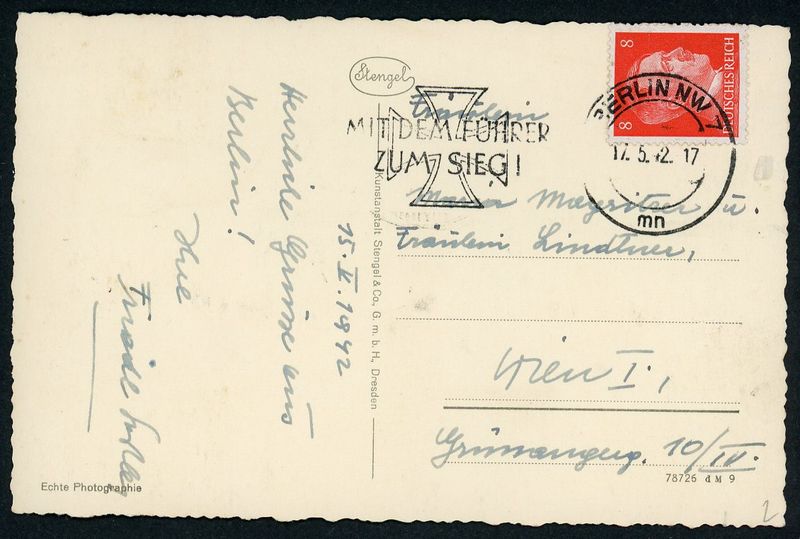 Stengel
8
8
DEUTSCHES REICH
BERLIN NW 7
17.5.42.17
mn
MIT DEM FÜHRER
ZUM SIEG!
Herzliche Grüsse aus
Berlin!
15. V. 1942
Fräulein
Maria Mayeritzer u.
Fräulein Lindtner,
Wien I.,
Grünangerg. 10/IV.
Kunstanstalt Stengel & Co., G. m. b. H., Dresden
Echte Photographie
78726 d M 9
2